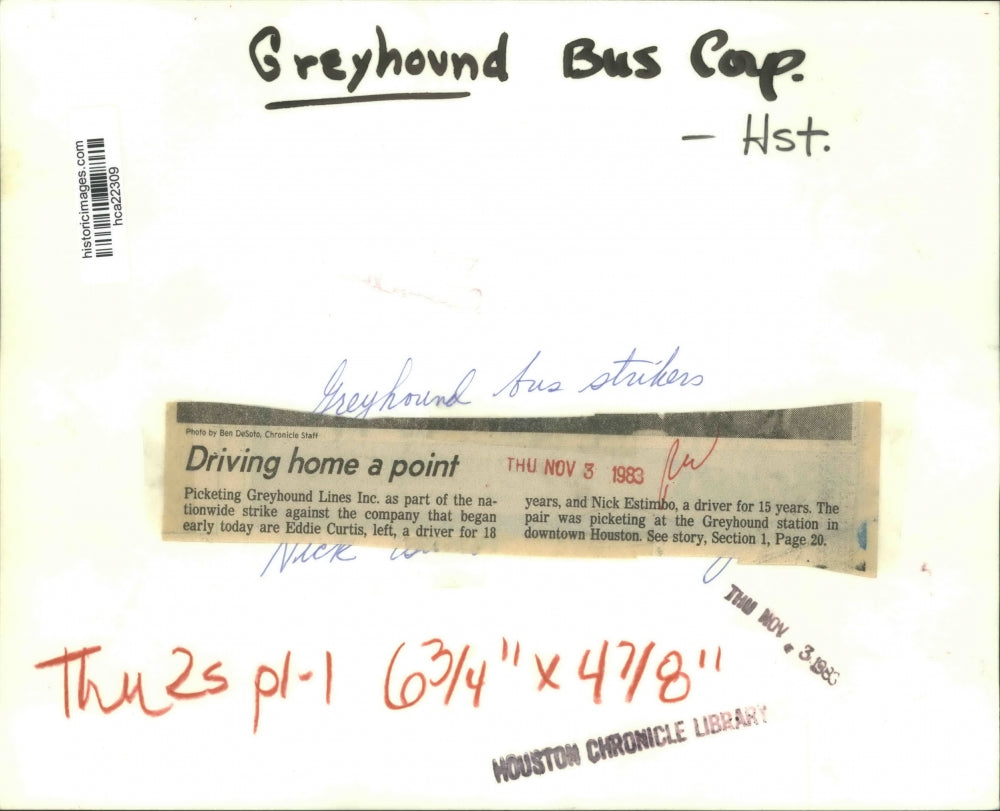 Greyhound Bus Corp.
- Hst.
historicimages.com
hca22309
Greyhound bus strikers
Photo by Ben DeSoto, Chronicle Staff
Driving home a point
THU NOV 3 1983
Picketing Greyhound Lines Inc. as part of the na-
tionwide strike against the company that began
early today are Eddie Curtis, left, a driver for 18
years, and Nick Estimbo, a driver for 15 years. The
pair was picketing at the Greyhound station in
downtown Houston. See story, Section 1, Page 20.
Nick
THU NOV. 3 1983
Thu 2s p1-1 6 3/4" x 4 7/8"
HOUSTON CHRONICLE LIBRARY